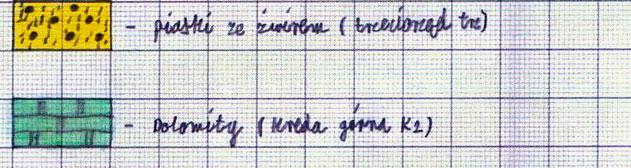 - piaski ze żwirem (trzeciorzęd trz)
- Dolomity (kreda górna K2)